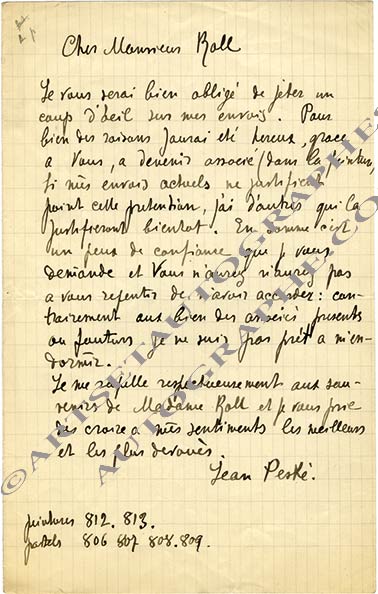 Cher Monsieur Roll
Je vous serai bien obligé de jeter un
coup d'œil sur mes envois. Pour
bien des raisons j'aurai été hereux, grace
a vous, a devenir associé (dans la peinture,
si mes envois actuels ne justificat
point cette pretention, j'ai d'autres qui la
justifieront bientot. En somme c'est
un peux de confiance que je vous
demande et Vous n'aurez n'aurez pas
a vous repentir de m'avoir accordez : con-
trairement aux bien des associés presents
ou fouturs je ne suis pas prêt a m'en-
dormir.
Je me rapelle respectueusement aux sou-
venirs de Madame Roll et je vous prie
des croire a mes sentiments les meilleurs
et les plus devoués.
Jean Peské.
peintures 812. 813.
pastels 806 807 808. 809.
©ARTSETAUTOGRAPHES.COM
AUTOGRAPHE.CO